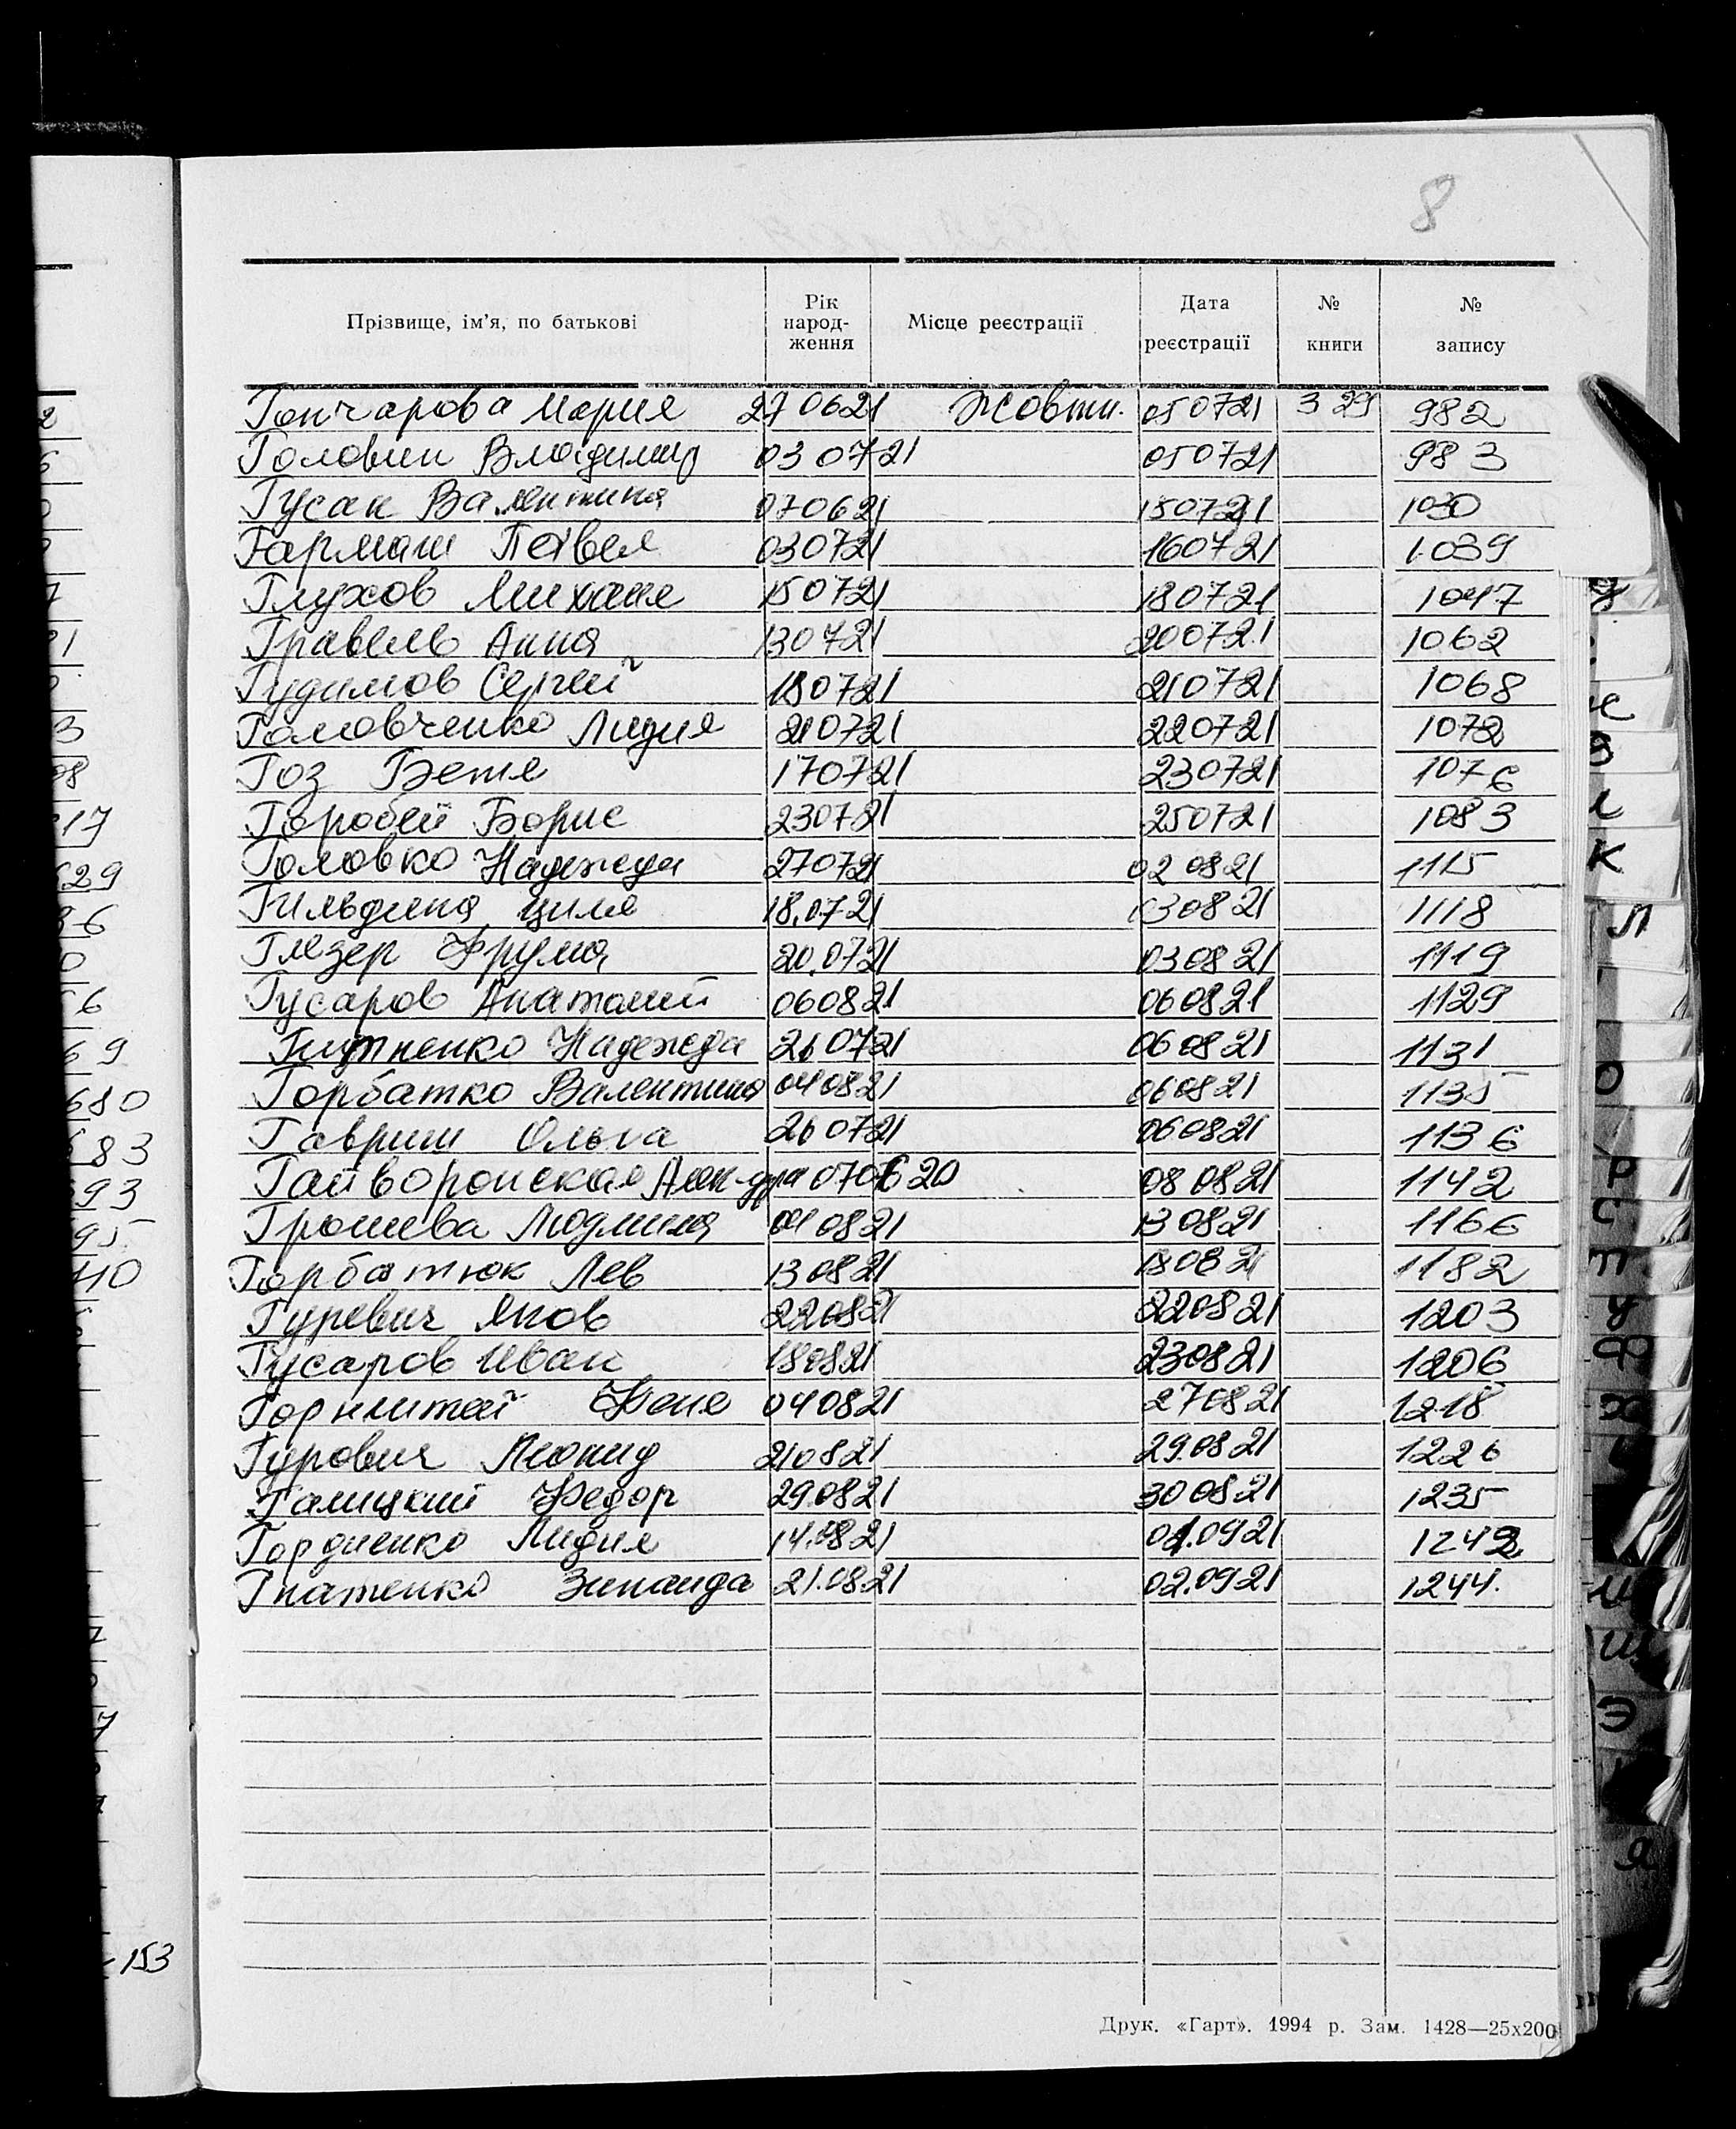 8
Прізвище, ім'я, по батькові Рік народ-ження Місце реєстрації Дата реєстрації № книги № запису
Гончарова Мария 270621 Жовтн. 050721 329 982
Головин Владимир 030721 050721 983
Гусак Валентина 070621 150721 1030
Гармаш Павел 030721 160721 1039
Глухов Михаил 150721 180721 1047
Гравель Анна 130721 200721 1062
Гудимов Сергей 180721 210721 1068
Головченко Лидия 210721 220721 1072
Гоз Бетя 170721 230721 1076
Горобей Борис 230721 250721 1083
Головко Надежда 270721 020821 1115
Гильдина Циля 18.07.21 030821 1118
Глезер Фрума 20.0721 030821 1119
Гусаров Анатолий 060821 060821 1129
Надежда 260721 060821 1131
Горбатко Валентина 040821 060821 1135
Гавриш Ольга 260721 060821 1136
Гайворонская Алек-дра 20 080821 1142
Грошева Людмила 040821 130821 1166
Горбатюк Лев 130821 180821 1182
Гуревич Яков 220821 220821 1203
Гусаров Иван 180821 230821 1206
Феня 040821 270821 1218
Гурович Леонид 210821 29.0821 1226
Галицкий Федор 290821 300821 1235
Гордиенко Лидия 14.0821 01.0921 1242
Гнатенко Зинаида 21.0821 02.0921 1244.
Друк. «Гарт». 1994 р. Зам. 1428—25х200
17
629
69
680
683
93
95
110
153
К
Л
О
Р
С
Т
У
Ф
Х
Ш
Э
Я